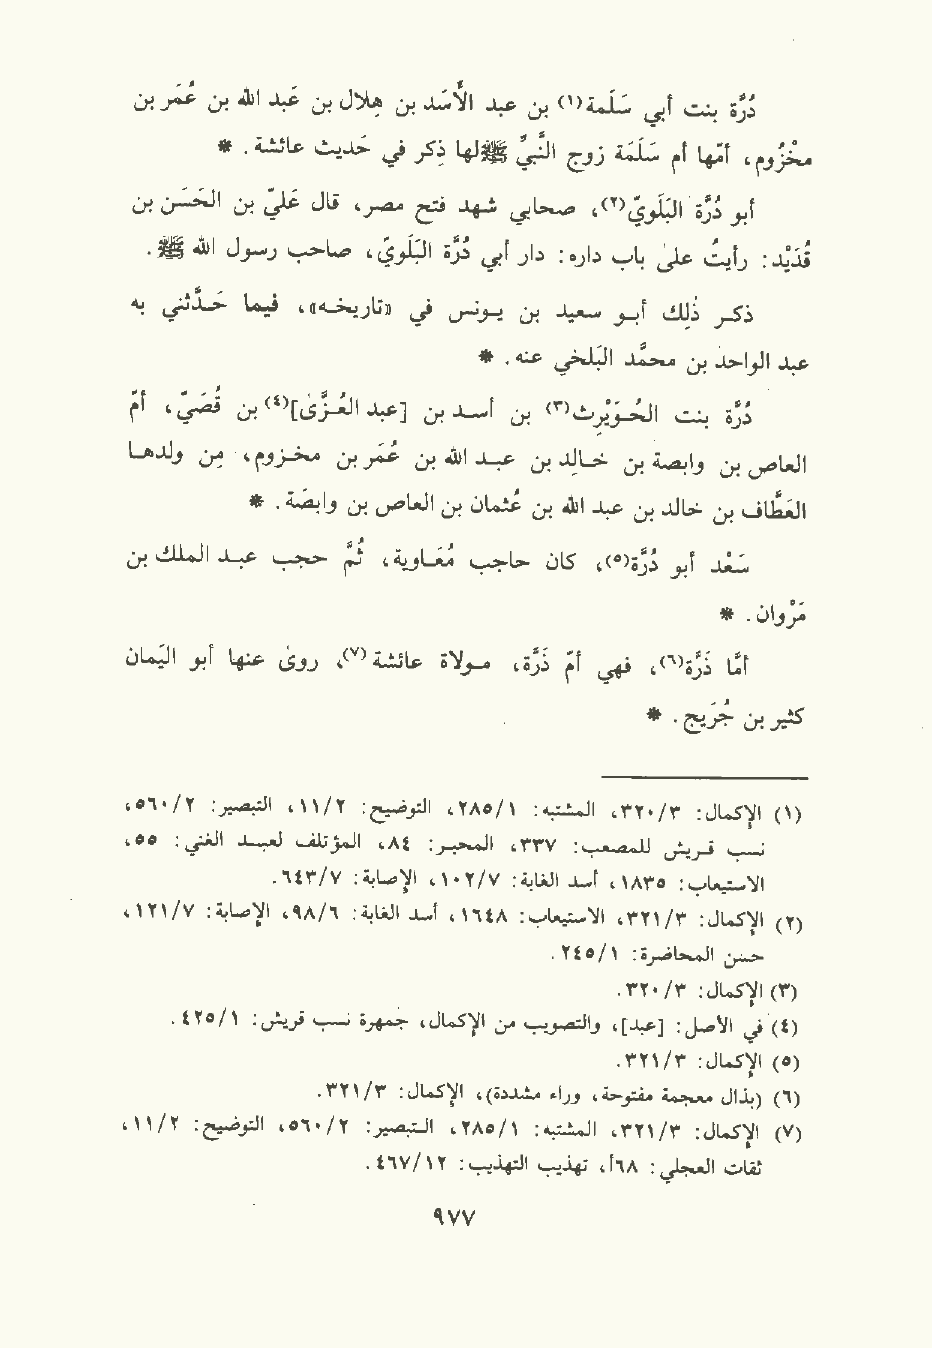 دُرَّة بنت أبي سَلَمة(١) بن عبد الأَسَد بن هِلال بن عَبد الله بن عُمَر بن
مخْزُوم، أمّها أم سَلَمَة زوج النَّبيِّ ﷺ لها ذِكر في حَديث عائشة. *
أبو دُرَّة البَلَويّ(٢)، صحابي شهد فتح مصر، قال عَليّ بن الحَسَن بن
قُدَيْد: رأيتُ علىٰ باب داره: دار أبي دُرَّة البَلَويّ، صاحب رسول الله ﷺ.
ذكر ذٰلك أبو سعيد بن يونس في «تاريخه»، فيما حَدَّثني به
عبد الواحد بن محمَّد البَلخي عنه. *
دُرَّة بنت الحُوَيْرِث(٣) بن أسد بن [عبد العُزَّىٰ](٤) بن قُصَيّ، أمّ
العاص بن وابصة بن خالِد بن عبد الله بن عُمَر بن مخزوم، مِن ولدها
العَطَّاف بن خالد بن عبد الله بن عُثمان بن العاص بن وابِصَة. *
سَعْد أبو دُرَّة(٥)، كان حاجب مُعَاوية، ثُمَّ حجب عبد الملك بن
مَرْوان. *
أمَّا ذَرَّة(٦)، فهي أم ذَرَّة، مولاة عائشة(٧)، روىٰ عنها أبو اليَمان
كثير بن جُرَيج. *
(١) الإكمال: ٣/٣٢٠، المشتبه: ١/٢٨٥، التوضيح: ٢/١١، التبصير: ٢/٥٦٠،
نسب قريش للمصعب: ٣٣٧، المحبر: ٨٤، المؤتلف لعبد الغني: ٥٥،
الاستيعاب: ١٨٣٥، أسد الغابة: ٧/١٠٢، الإصابة: ٧/٦٤٣.
(٢) الإكمال: ٣/٣٢١، الاستيعاب: ١٦٤٨، أسد الغابة: ٦/٩٨، الإصابة: ٧/١٢١،
حسن المحاضرة: ١/٢٤٥.
(٣) الإكمال: ٣/٣٢٠.
(٤) في الأصل: [عبد]، والتصويب من الإكمال، جمهرة نسب قريش: ١/٤٢٥.
(٥) الإكمال: ٣/٣٢١.
(٦) (بذال معجمة مفتوحة، وراء مشددة)، الإكمال: ٣/٣٢١.
(٧) الإكمال: ٣/٣٢١، المشتبه: ١/٢٨٥، التبصير: ٢/٥٦٠، التوضيح: ٢/١١،
ثقات العجلي: ٦٨أ، تهذيب التهذيب: ١٢/٤٦٧.
٩٧٧